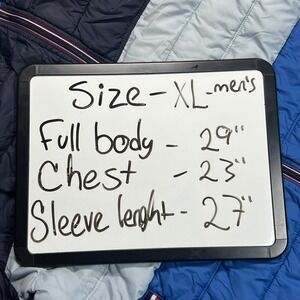 Size - XL - men's
Full body - 29"
Chest - 23"
Sleeve lenght - 27"